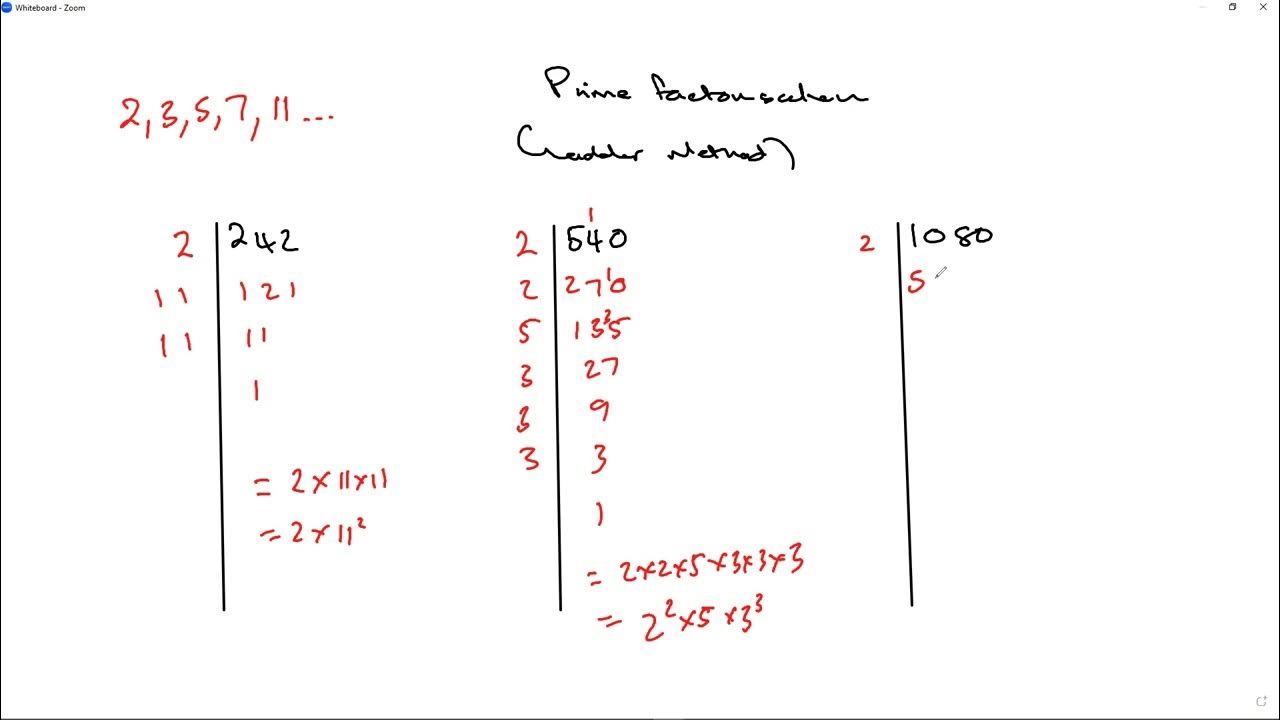 Whiteboard - Zoom
2, 3, 5, 7, 11 ...
Prime factorisation
(Ladder Method)
2 | 242
11 | 121
11 | 11
1
= 2 × 11 × 11
= 2 × 11²
1
2 | 540
2 | 27¹0
5 | 13³5
3 | 27
3 | 9
3 | 3
1
= 2 × 2 × 5 × 3 × 3 × 3
= 2² × 5 × 3³
2 | 1080
5